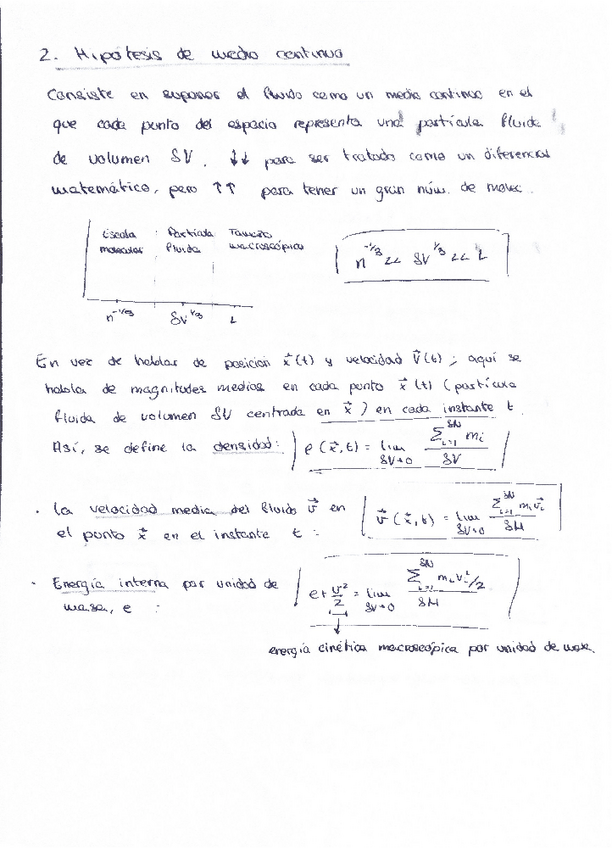 2. Hipótesis de medio continuo
Consiste en suponer el fluido como un medio continuo en el
que cada punto del espacio representa una partícula fluida
de volumen δV, ↓↓ para ser tratado como un diferencial
matemático, pero ↑↑ para tener un gran núm. de molec.
Escala Partícula Tamaño
molecular fluida macroscópico
n^-1/3 δV^1/3 L
n^-1/3 << δV^1/3 << L
En vez de hablar de posicion x⃗(t) y velocidad V⃗(t); aquí se
habla de magnitudes medias en cada punto x⃗(t) (partícula
fluida de volumen δV centrada en x⃗) en cada instante t.
Así, se define la densidad: ρ(x⃗,t) = lim δV→0 Σ_{i=1}^{δN} m_i / δV
· La velocidad media del fluido v⃗ en
el punto x⃗ en el instante t : v⃗(x⃗,t) = lim δV→0 Σ_{i=1}^{δN} m_i v⃗_i / δM
· Energía interna por unidad de
masa, e : e + v²/2 = lim δV→0 Σ_{i=1}^{δN} m_i v_i²/2 / δM
energía cinética macroscópica por unidad de masa.